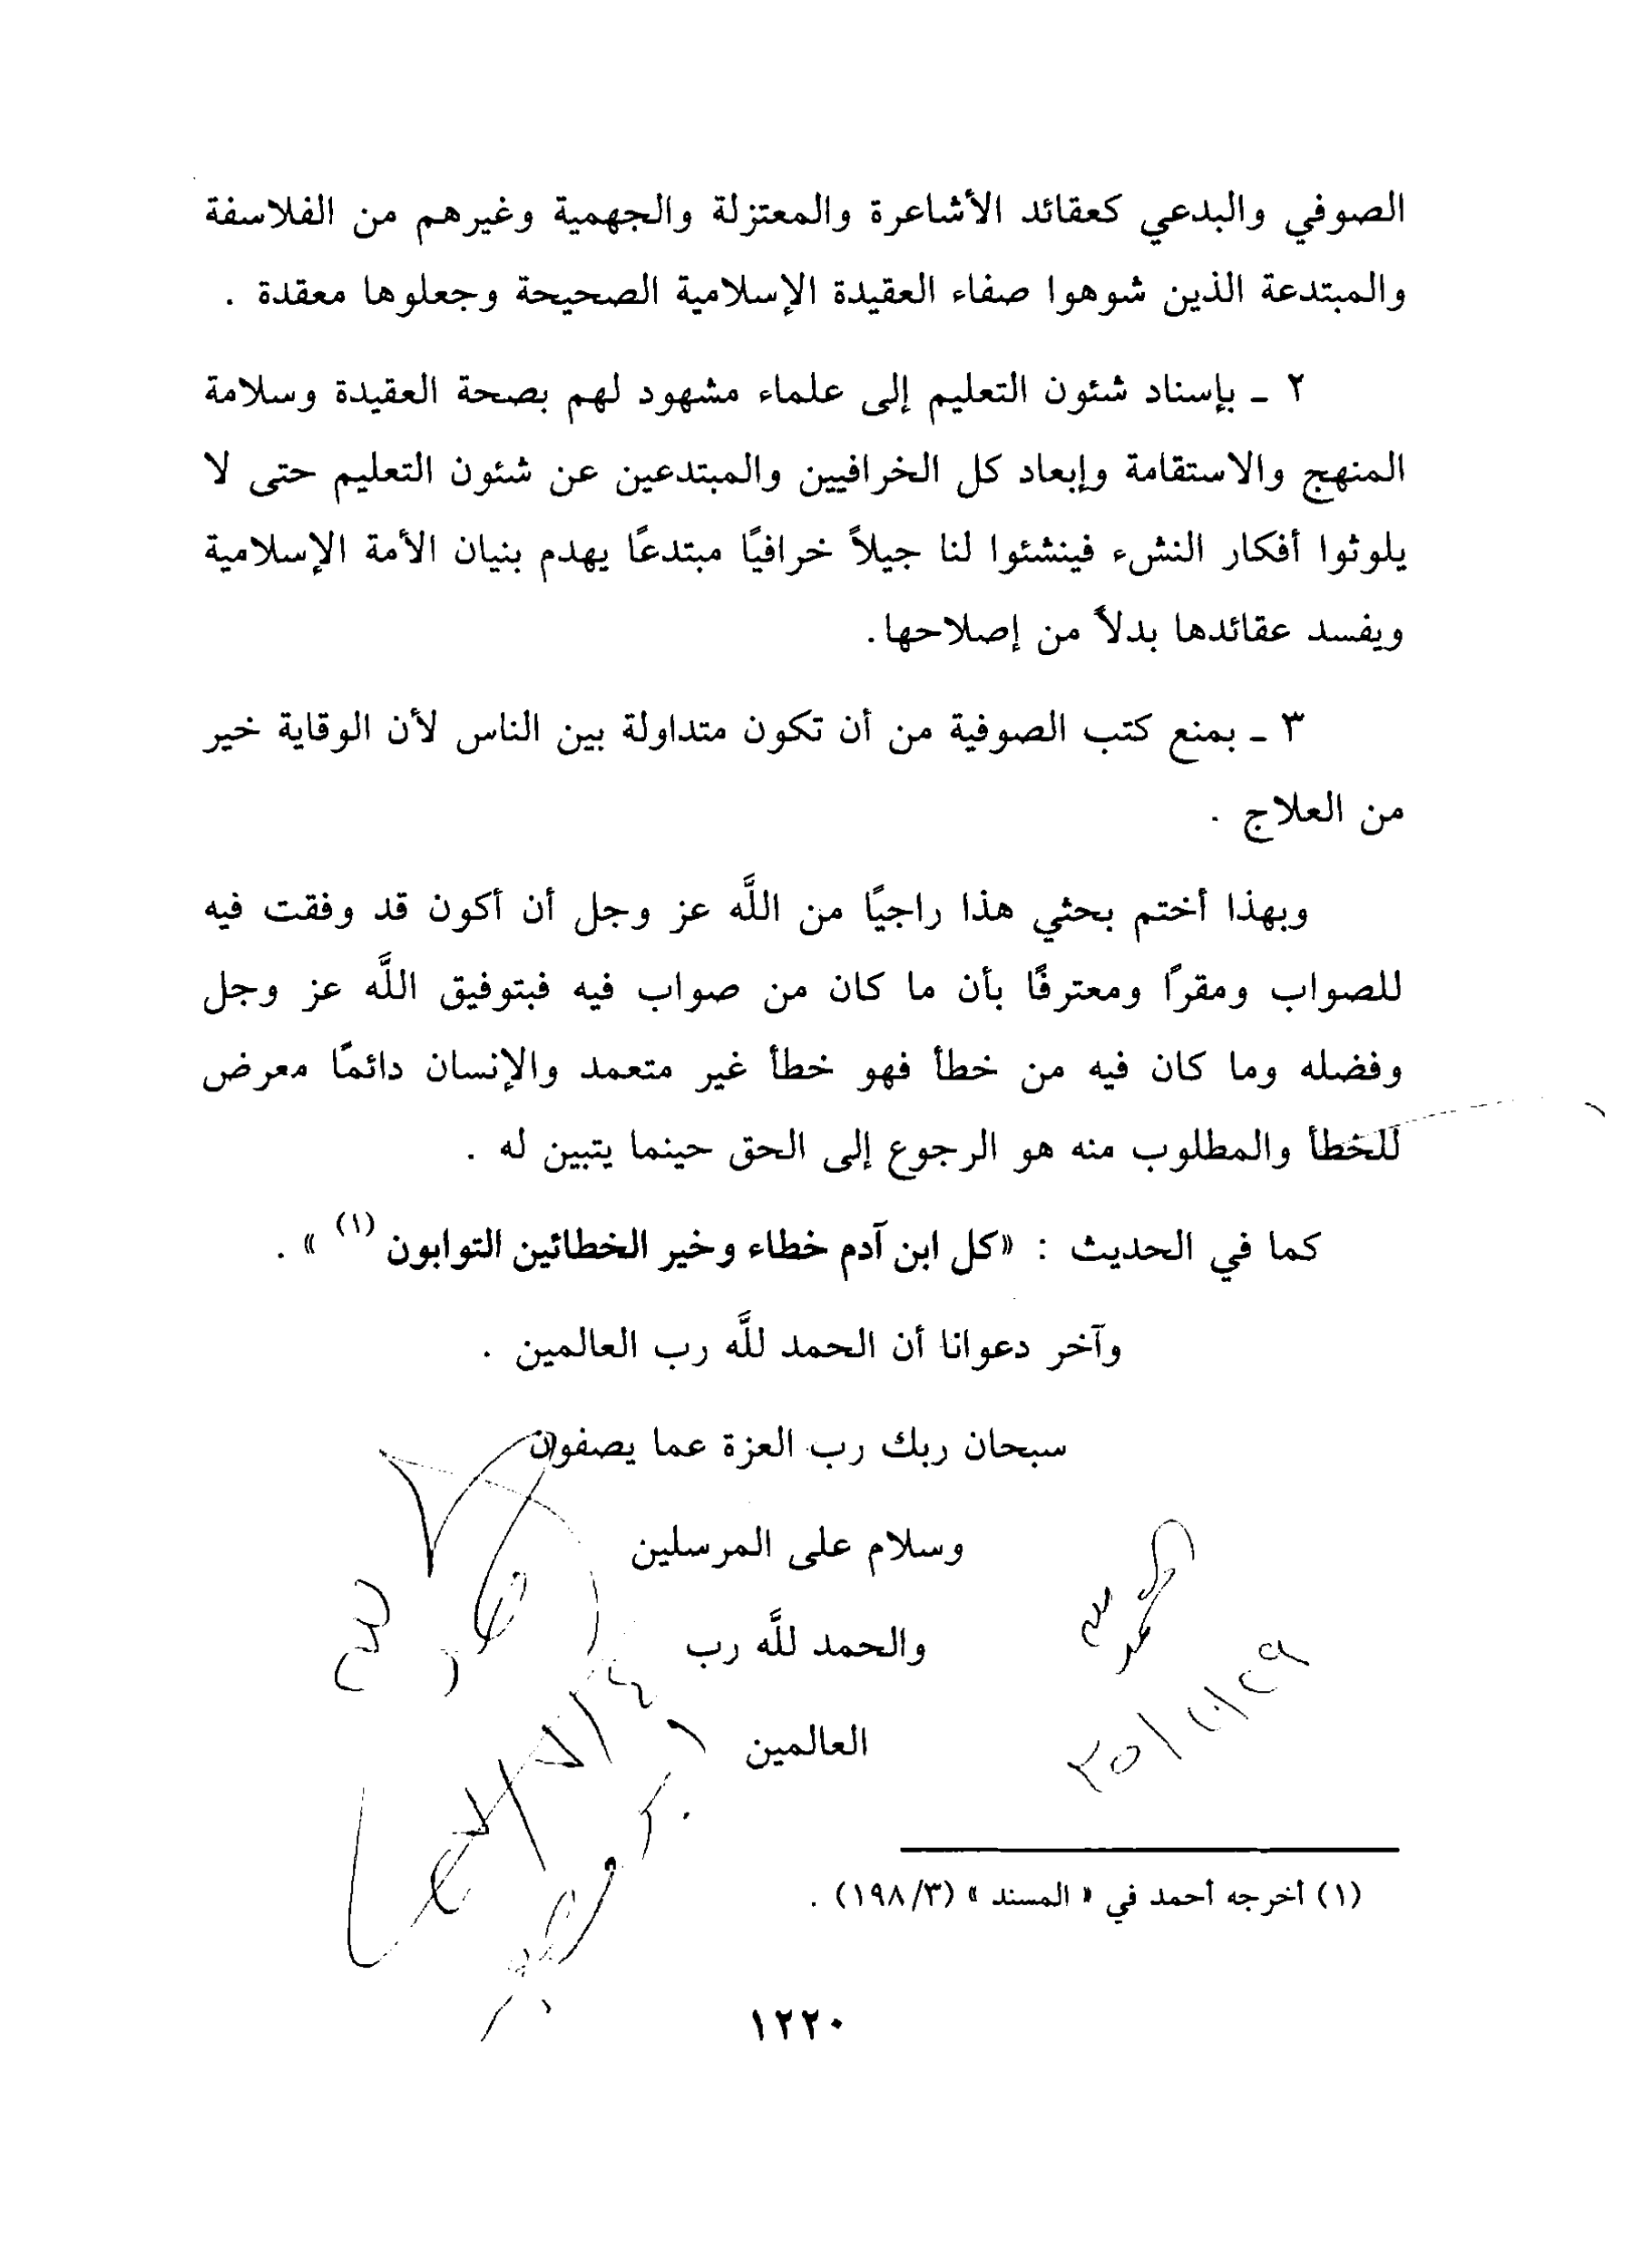 الصوفي والبدعي كعقائد الأشاعرة والمعتزلة والجهمية وغيرهم من الفلاسفة
والمبتدعة الذين شوهوا صفاء العقيدة الإسلامية الصحيحة وجعلوها معقدة .
٢ ـ بإسناد شئون التعليم إلى علماء مشهود لهم بصحة العقيدة وسلامة
المنهج والاستقامة وإبعاد كل الخرافيين والمبتدعين عن شئون التعليم حتى لا
يلوثوا أفكار النشء فينشئوا لنا جيلاً خرافيًا مبتدعًا يهدم بنيان الأمة الإسلامية
ويفسد عقائدها بدلاً من إصلاحها.
٣ ـ بمنع كتب الصوفية من أن تكون متداولة بين الناس لأن الوقاية خير
من العلاج .
وبهذا أختم بحثي هذا راجيًا من اللَّه عز وجل أن أكون قد وفقت فيه
للصواب ومقرًا ومعترفًا بأن ما كان من صواب فيه فبتوفيق اللَّه عز وجل
وفضله وما كان فيه من خطأ فهو خطأ غير متعمد والإنسان دائمًا معرض
للخطأ والمطلوب منه هو الرجوع إلى الحق حينما يتبين له .
كما في الحديث : «كل ابن آدم خطاء وخير الخطائين التوابون (١) » .
وآخر دعوانا أن الحمد للَّه رب العالمين .
سبحان ربك رب العزة عما يصفون
وسلام على المرسلين
والحمد للَّه رب
العالمين
(١) أخرجه أحمد في « المسند » (١٩٨/٣) .
١٢٢٠